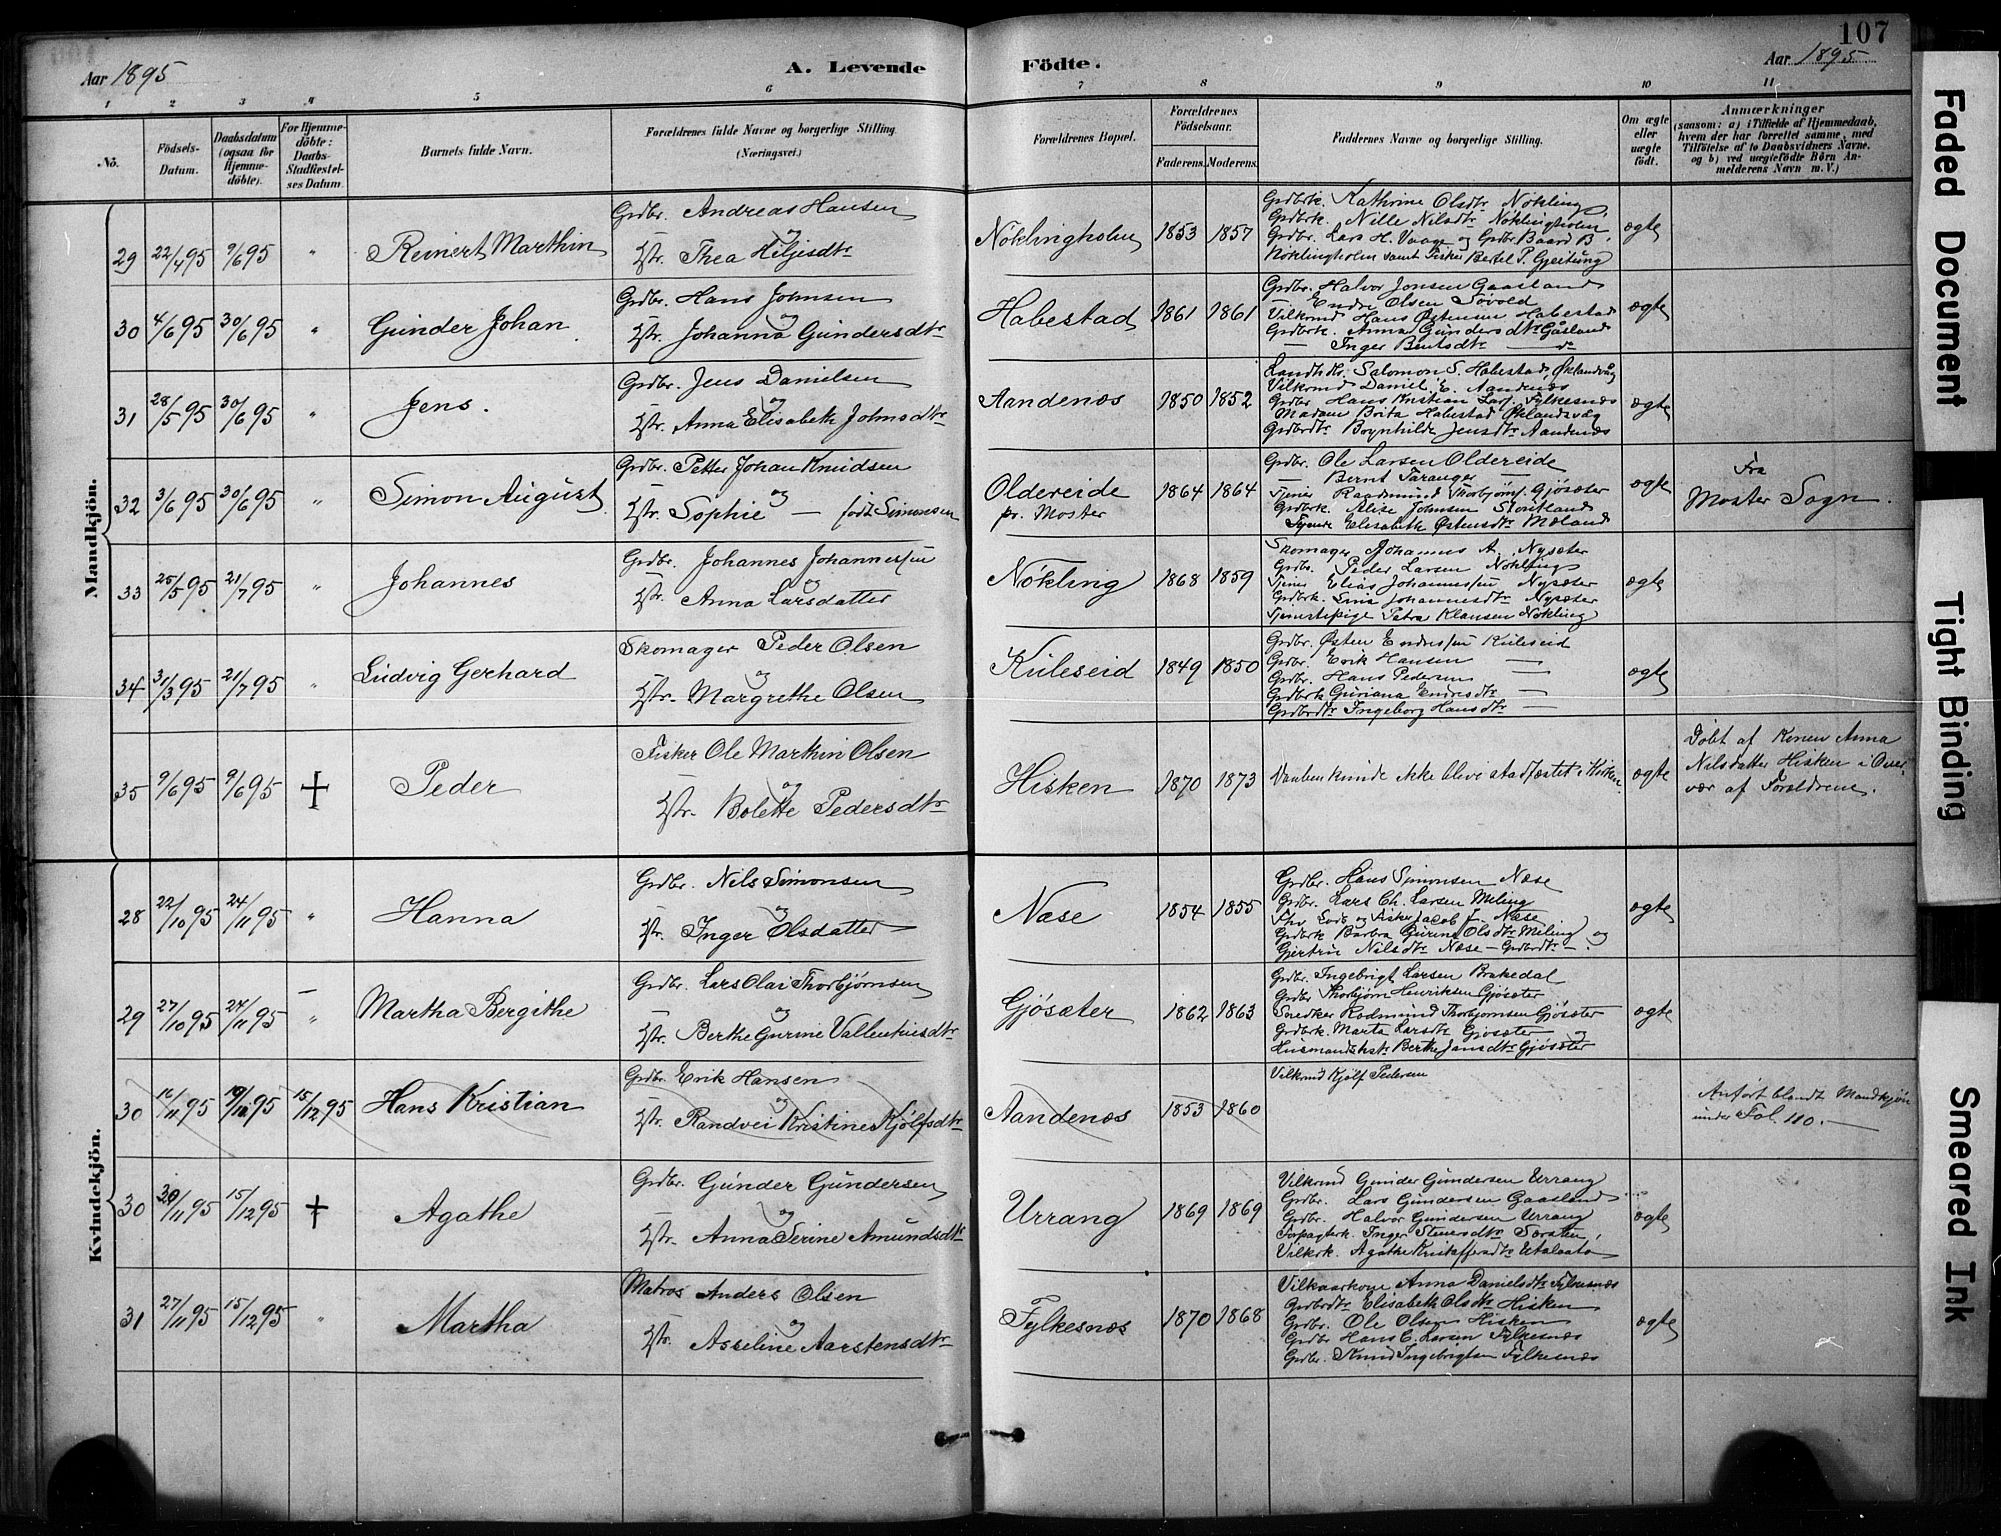 107
Aar 1895
A. Levende
Födte.
Aar 1895
1 2 3 4 5 6 7 8 9 10 11
No.
Födsels-Datum.
Daabsdatum (ogsaa for Hjemmedöbte).
For Hjemmedöbte: Daabs-Stadfæstelses Datum
Barnets fulde Navn.
Forældrenes fulde Navne og borgerlige Stilling
(Næringsvei.)
Forældrenes Bopæl.
Forældrenes Födselsaar.
Faderens. Moderens.
Faddernes Navne og borgerlige Stilling.
Om ægte eller uægte födt.
Anmærkninger
(saasom: a) i Tilfælde af Hjemmedaab, hvem der har forrettet samme, med Tilföielse af to Daabsvidners Navne. og b) ved uægtefödte Börn Anmelderens Navn m. V.)
Mandkjön.
29 22/4 95 9/6 95 " Reinert Marthin
Grdbr. Andreas Hansen
og
Hstr. Thea Hiljisdtr
Nöklingholm 1853 1857
Grdbrk. Kathrine Olsdtr Nökling
Grdbrk. Nille Nilsdtr Nöklingholm
Grdbr. Lars H. Vaage og Grdbr Baard B.
Nöklingholm samt Fisker Bertel P. Gjeitung
ægte
30 4/6 95 30/6 95 " Gunder Johan
Grdbr. Hans Johnsen
og
Hstr. Johanna Gundersdtr
Habestad 1861 1861
Grdbr. Halvor Jonsen Gaasland
Endre Olsen Søvold
Vilkrmd Hans Østensen Habestad
Grdbrk. Anna Gundersdtr Gåsland
— Inger Bentsdtr — do
ægte
31 28/5 95 30/6 95 " Jens.
Grdbr. Jens Danielsen
og
Hstr. Anna Elisabeth Johnsdtr
Aandenæs 1850 1852
Landhdlr. Salomon S. Habestad, Øklandvåg
Vilkrmd Daniel E. Aandenæs
Grdbr Hans Kristian Lars. Fylkesnæs
Madam Brita Habestad Øklandsvåg
Grdbrdtr Boynhilde Jensdtr Aandenæs
ægte
32 3/6 95 30/6 95 " Simon August
Grdbr. Petter Johan Knudsen
og
Hstr. Sophie — født Simonsen
Oldereide
pr. Moster
1864 1864
Grdbr. Ole Larsen Oldereide
— Bernt Taranger —
Tjener Raadmund Thorbjørns. Gjøsæter
Grdbrk. Alise Johnsen Stoutland
Tjende Elisabeth Østensdtr Mæland
ægte
Fra
Moster Sogn.
33 25/5 95 21/7 95 " Johannes
Grdbr. Johannes Johannessen
og
Hstr. Anna Larsdatter
Nökling 1868 1859
Skomager Johannes A. Nysæter
Grdbr. Peder Larsen Nökling
Tjener Elias Johannessen Nysæter
Grdbrk. Lina Johannesdtr Nysæter
Tjenestepige Petra Klausen Nökling
ægte
34 31/3 95 21/7 95 " Ludvig Gerhard
Skomager Peder Olsen
og
Hstr. Margrethe Olsen
Kuleseid 1849 1850
Grdbr. Østen Endressen Kuleseid
Grdbr. Erik Hansen —
Grdbr. Hans Pedersen —
Grdbrk Guriana Endresdtr —
Grdbrdtr Ingeborg Hansdtr —
ægte
35 9/6 95 9/6 95 + Peder
Fisker Ole Marthin Olsen
og
Hstr. Bolette Pedersdtr
Hisken 1870 1873
Daaben kunde ikke blive stadfæstet i Kirken.
ægte
Döbt af Konen Anna
Nilsdatter Hisken i Overvær
af Forældrene.
Kvindekjön.
28 22/10 95 24/11 95 " Hanna
Grdbr. Nils Simonsen
og
Hstr. Inger Olsdatter
Næse 1854 1855
Grdbr. Hans Simonsen Næse
Grdbr. Lars Ch. Larsen Meling
Fhv Lods og Fisker Jacob J. Næse
Grdbrk Barbra Gurine Olsdtr Meling og
Gjertru Nilsdtr Næse — Grdbrdtr —
ægte
29 27/10 95 24/11 95 " Martha Bergithe
Grdbr. Lars Olai Thorbjørnsen
og
Hstr. Berthe Gurine Vallentinsdtr
Gjösæter 1862 1863
Grdbr. Ingebrigt Larsen Brakedal
Grdbr Thorbjørn Henriksen Gjøsæter
Snedker Rodmund Thorbjørnsen Gjøsæter
Grdbrk. Marta Larsdtr Gjøsæter og
Husmandskstr Berthe Jansdtr Gjøsæter
ægte
30 16/11 95 15/12 95 Hans Kristian
Grdbr. Erik Hansen
og
Hstr. Randvei Kristine Kjölfsdtr
Aandenæs 1853 1860
Vilkrmd Kjölf Pedersen
Anfört blandt Mandkjön
under Fol. 110. —
30 15/12 95 + Agathe
Grdbr. Gunder Gundersen
og
Hstr. Anna Serine Amundsdtr
Urrang 1869 1869
Vilkrmd Gunder Gundersen Urrang
Grdbr. Lars Gundersen Gaasland
Grdbr. Halvor Gundersen Urrang
Forpagterk. Inger Steensdtr Sorsten
Vilkrk. Agathe Kristoffersdtr
ægte
31 27/11 95 15/12 95 " Martha
Matros Anders Olsen
og
Hstr. Asseline Aarstensdtr
Fylkesnæs 1870 1868
Vilkaarkone Anna Danielsdtr Fylkesnæs
Grdbrdtr Elisabeth Olsdtr Hisken
Grdbr. Ole Olsen Hisken
Grdbr Hans C. Larsen Fylkesnæs
Grdbr. Knud Ingebrigtsen Fylkesnæs
ægte
Faded Document
Tight Binding
Smeared Ink